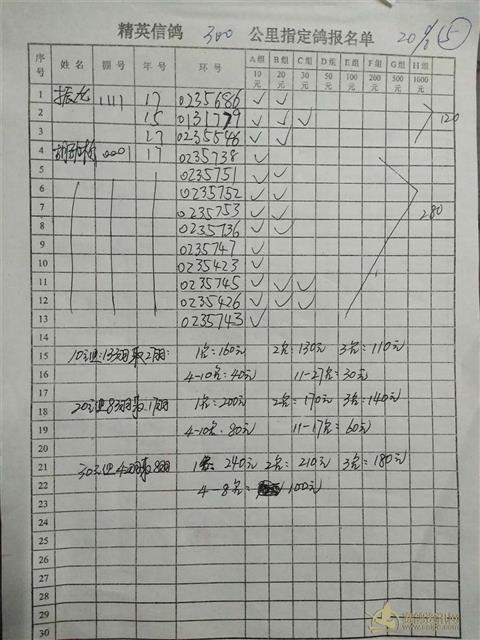 精英信鸽 300 公里指定鸽报名单 20% ⑤
序号 姓名 棚号 年号 环号 A组10元 B组20元 C组30元 D组50元 E组100元 F组200元 G组500元 H组1000元
1 1111 17 0235686 ✓ ✓
2 15 0131779 ✓ ✓ ✓ 120
3 17 0235546 ✓ ✓
4 0001 17 0235738 ✓
5 0235751 ✓ ✓
6 0235752 ✓ ✓
7 0235753 ✓ ✓ 280
8 0235736 ✓ ✓
9 0235747 ✓
10 0235423 ✓
11 0235745 ✓ ✓ ✓
12 0235426 ✓ ✓ ✓
13 0235743 ✓
14
15 10元组:133羽取27羽: 1名:160元 2名:130元 3名:110元
16 4-10名:40元 11-27名:30元
17
18 20元组83羽取17羽 1名:200元 2名:170元 3名:140元
19 4-10名:80元 11-17名:60元
20
21 30元组42羽取8羽 1名:240元 2名:210元 3名:180元
22 4-8名: 100元
23
24
25
26
27
28
29
30